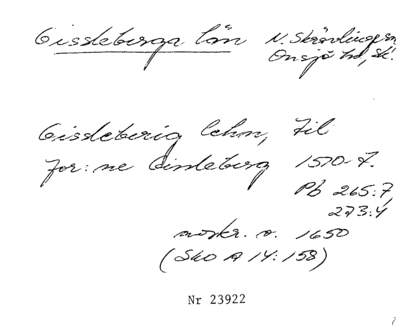 Gissleberga län N. Skrävlinge sn
Onsjö hd, Sk.
Gissleberig lehn, til
for: ne Gindeberg 1570-t.
Pb 265:7,
273:4
avskr. o. 1650
(Sko A 14:158)
Nr 23922